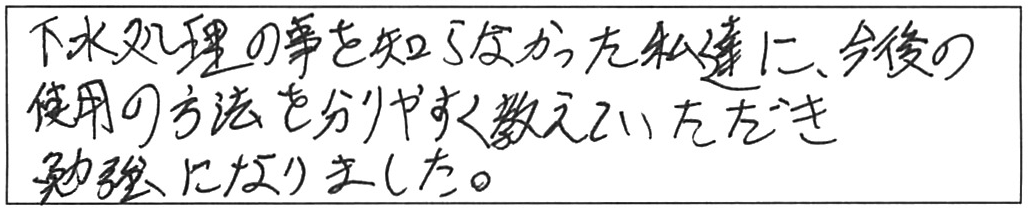 下水処理の事を知らなかった私達に、今後の
使用の方法を分りやすく教えていただき
勉強になりました。